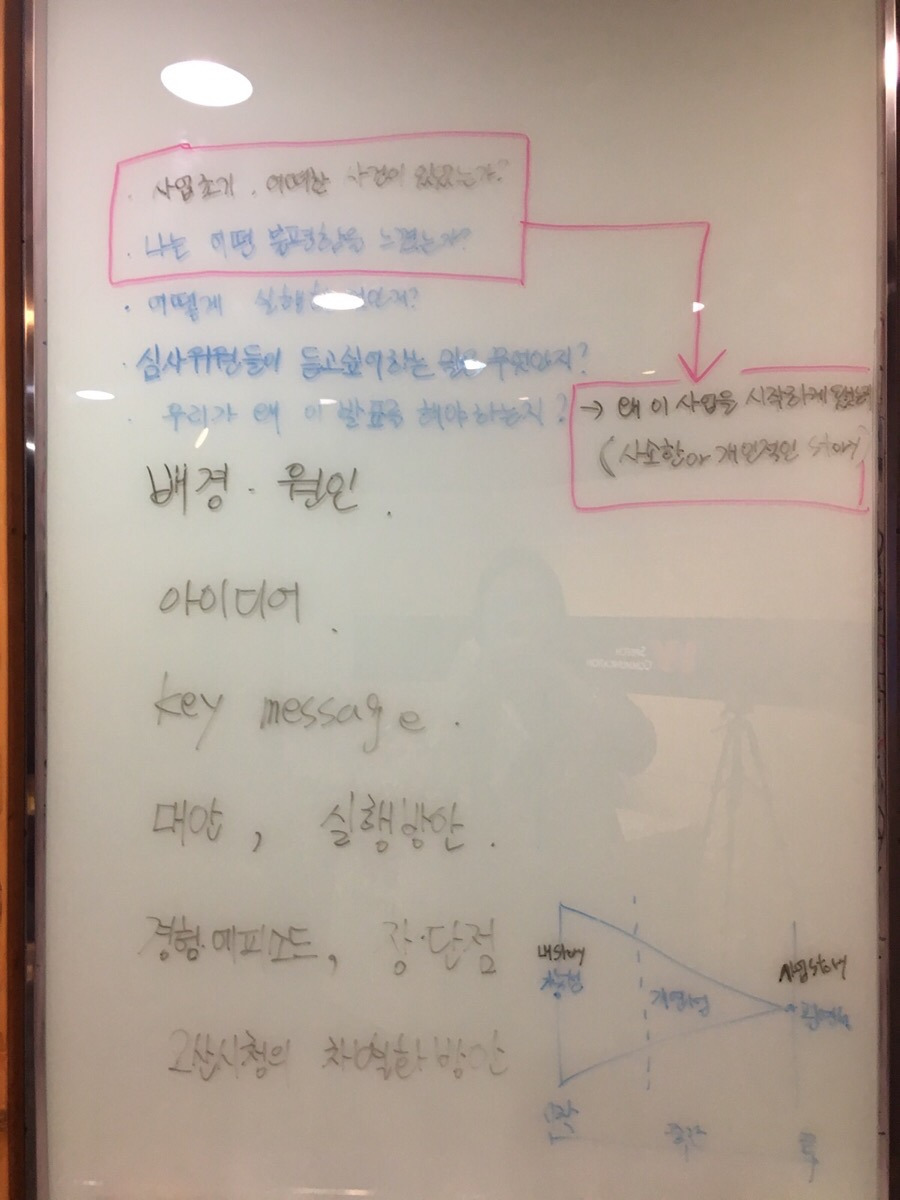 · 사업초기, 어떠한 사건이 있었는가?
· 나는 어떤 불편함을 느꼈는가?
· 어떻게 실행
· 심사위원들이 듣고싶어하는 말은 무엇인지?
· 우리가 왜 이 발표를 해야하는지?
→ 왜 이 사업을 시작하게
(사소한 or 개인적인 story)
배경 · 원인.
아이디어.
key message.
대안, 실행방안.
경험·에피소드, 장·단점
차별화방안
창형
개연성
사업
중간